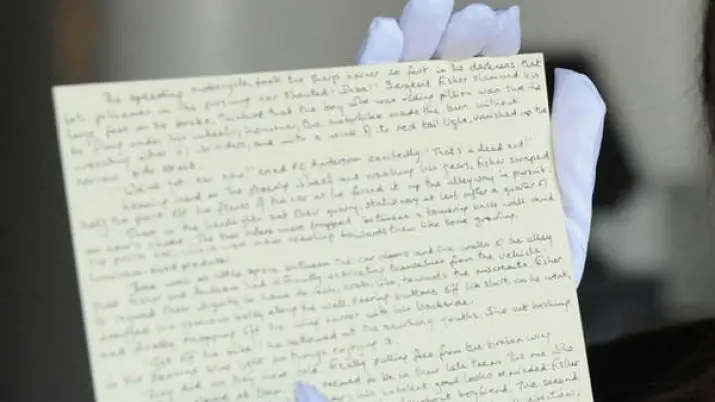 The speeding motorcycle took the sharp corner so fast in the darkness that
both policemen in the pursuing car shouted 'Whoa!' Sergeant Fisher slammed his
large foot on the brake, thinking that the boy who was riding pillion was sure to be
flung under his wheels; however, the motorbike made the turn without
unseating either of its riders, and with a wink of its red tail light, vanished up the
narrow side street.
'We've got 'em now!' cried PC Anderson excitedly. 'That's a dead end!'
Leaning hard on the steering wheel and crashing his gears, Fisher scraped
half the paint off the flank of the car as he forced it up the alleyway in pursuit.
There in the headlights sat their quarry, stationary at last after a quarter of
an hour's chase. The two riders were trapped between a towering brick wall and
the police car, which was now crawling towards them like some growling,
luminous-eyed predator.
There was so little space between the car doors and the walls of the alley
that Fisher and Anderson had difficulty extricating themselves from the vehicle.
It injured their dignity to have to inch, crab-like, towards the miscreants. Fisher
dragged his generous belly along the wall, tearing buttons off his shirt as he went,
and finally snapping off the wing mirror with his backside.
'Get off the bike!' he bellowed at the smirking youths, who sat basking
in the flashing blue light as though enjoying it.
They did as they were told. Finally pulling free from the broken wing
seemed to be in their late teens. The one who
his insolent good looks reminded Fisher
boyfriend. The second